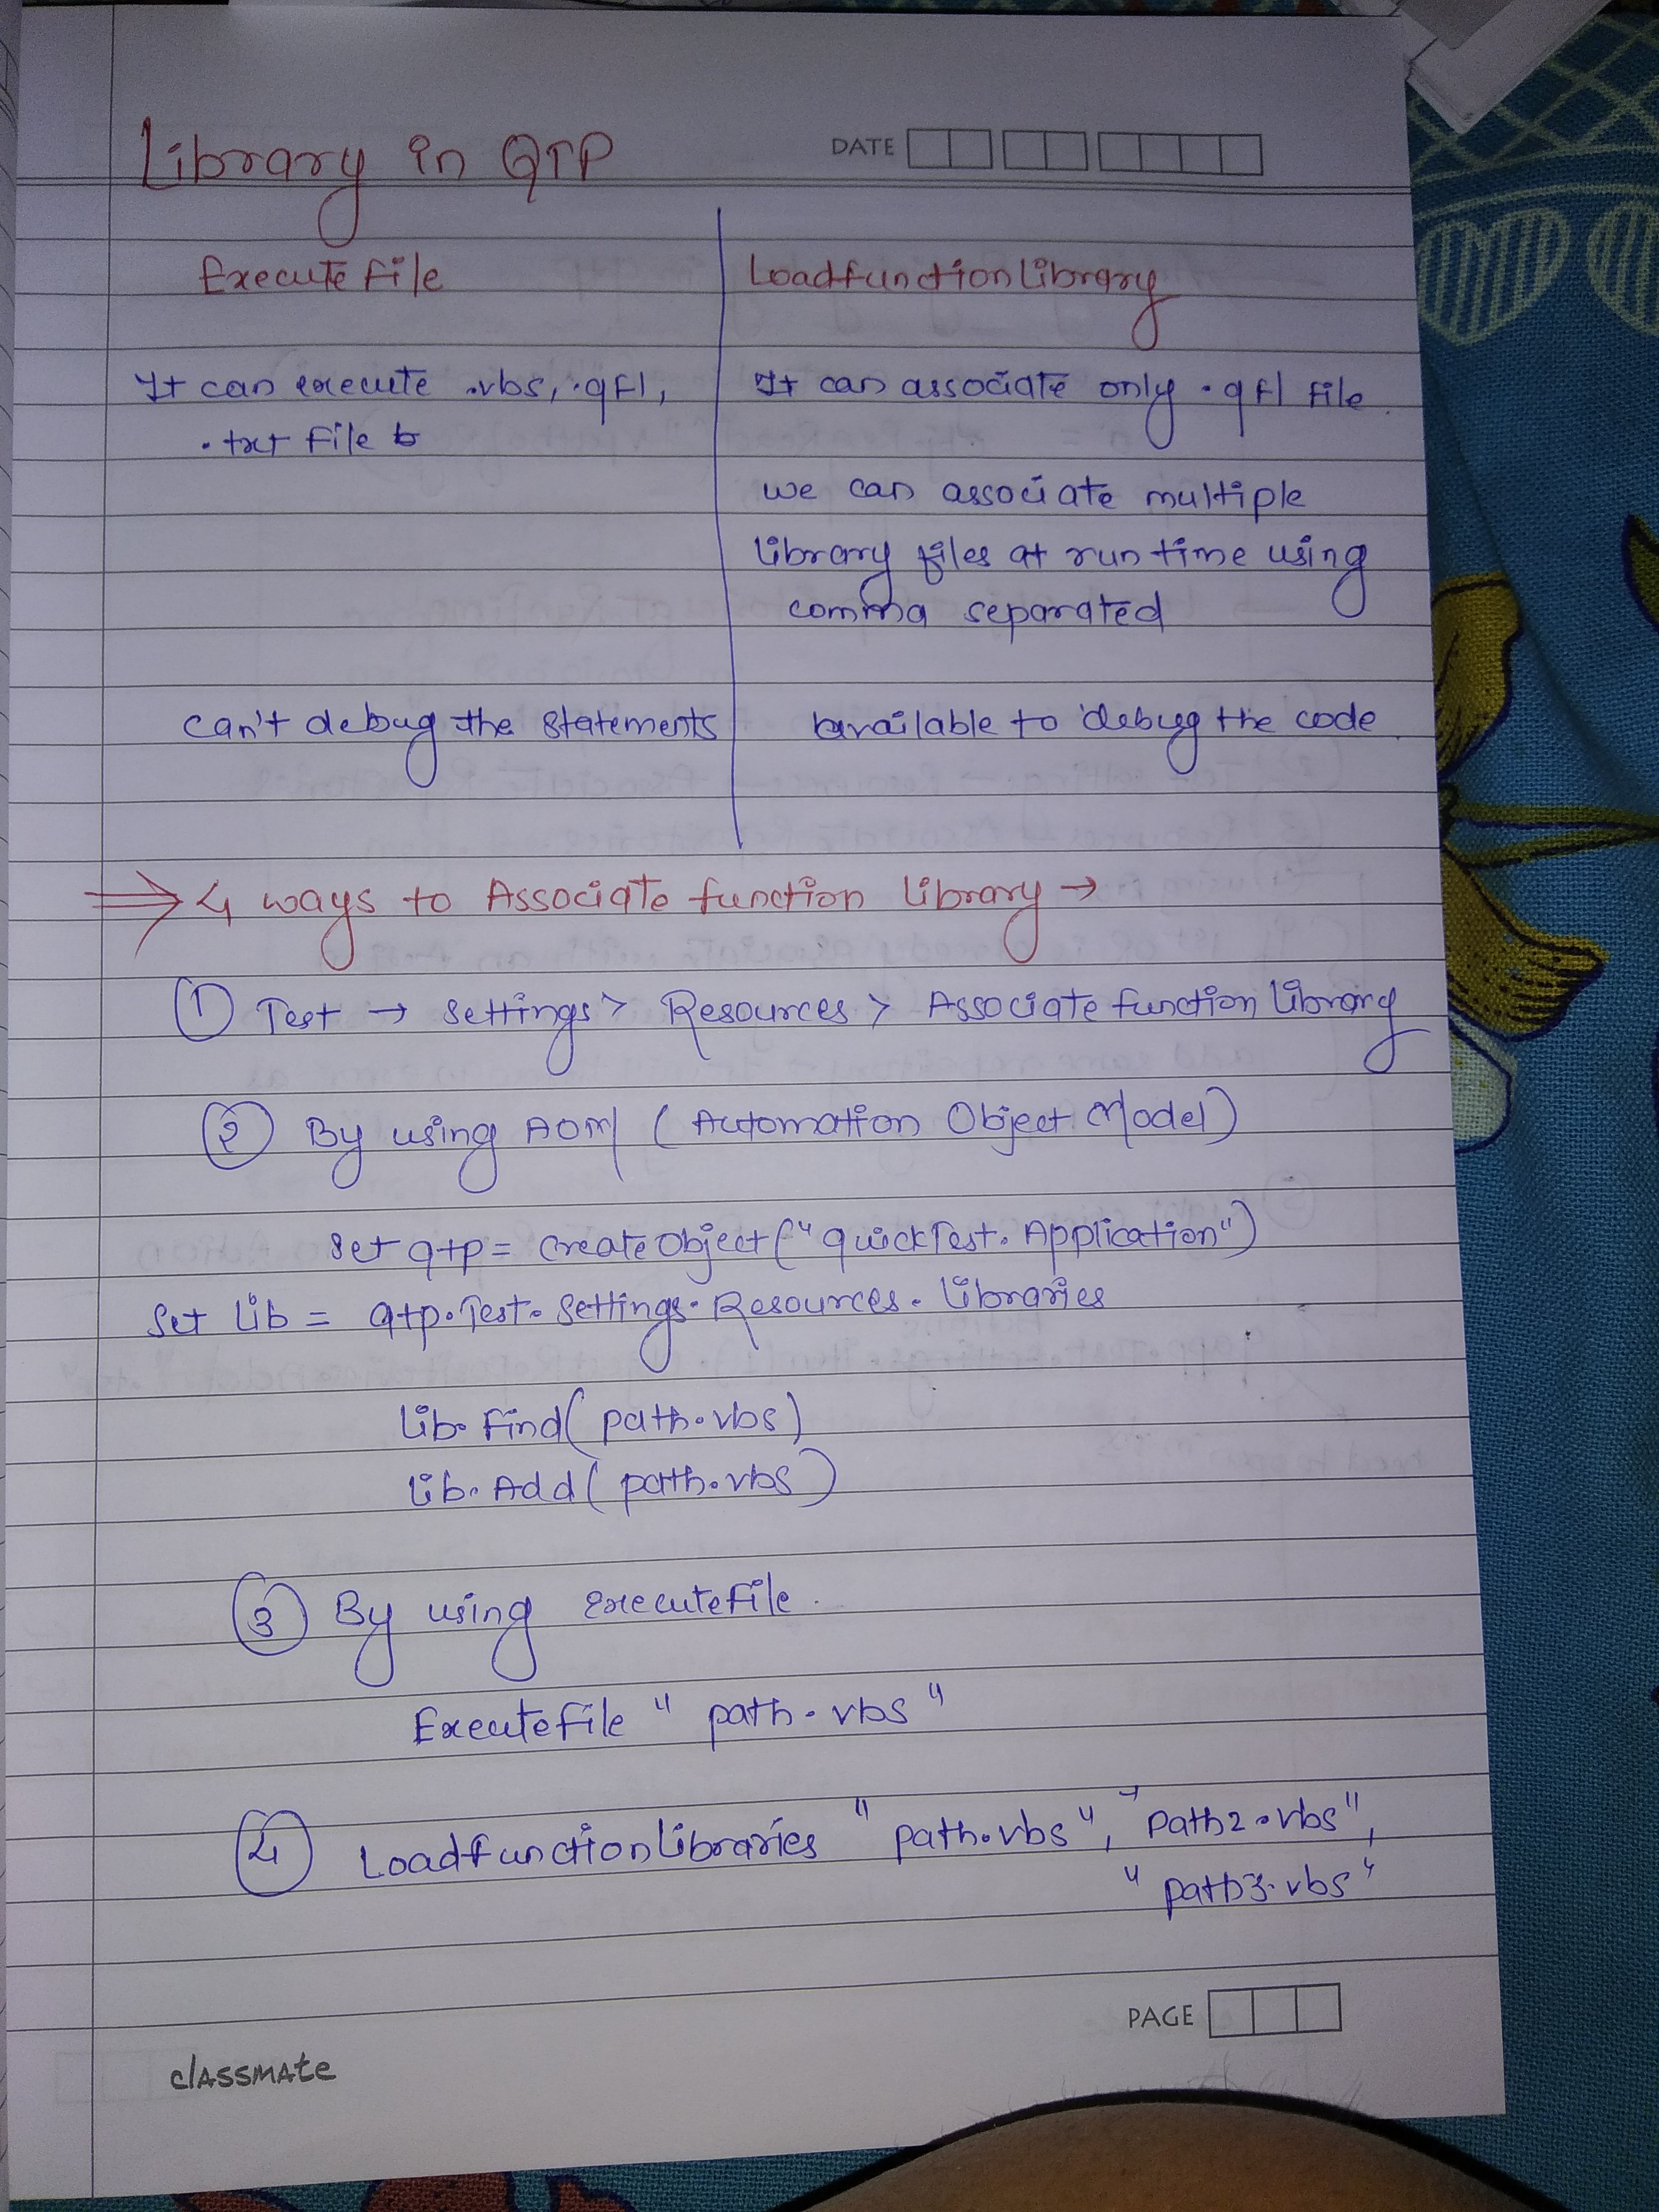 Library in QTP
DATE
Executefile
LoadfunctionLibrary
It can execute .vbs, .qfl,
.txt file
It can associate only .qfl file.
we can associate multiple
library files at run time using
comma separated
can't debug the statements
available to debug the code.
⇒ 4 ways to Associate function library →
① Test → settings > Resources > Associate function library
② By using AOM (Automation Object Model)
set qtp = createobject("quickTest.Application")
set lib = qtp.Test.settings.Resources.libraries
lib.find(path.vbs)
lib.Add(path.vbs)
③ By using executefile.
Executefile "path.vbs"
④ Loadfunctionlibraries "path.vbs", "path2.vbs",
"path3.vbs"
PAGE
classmate